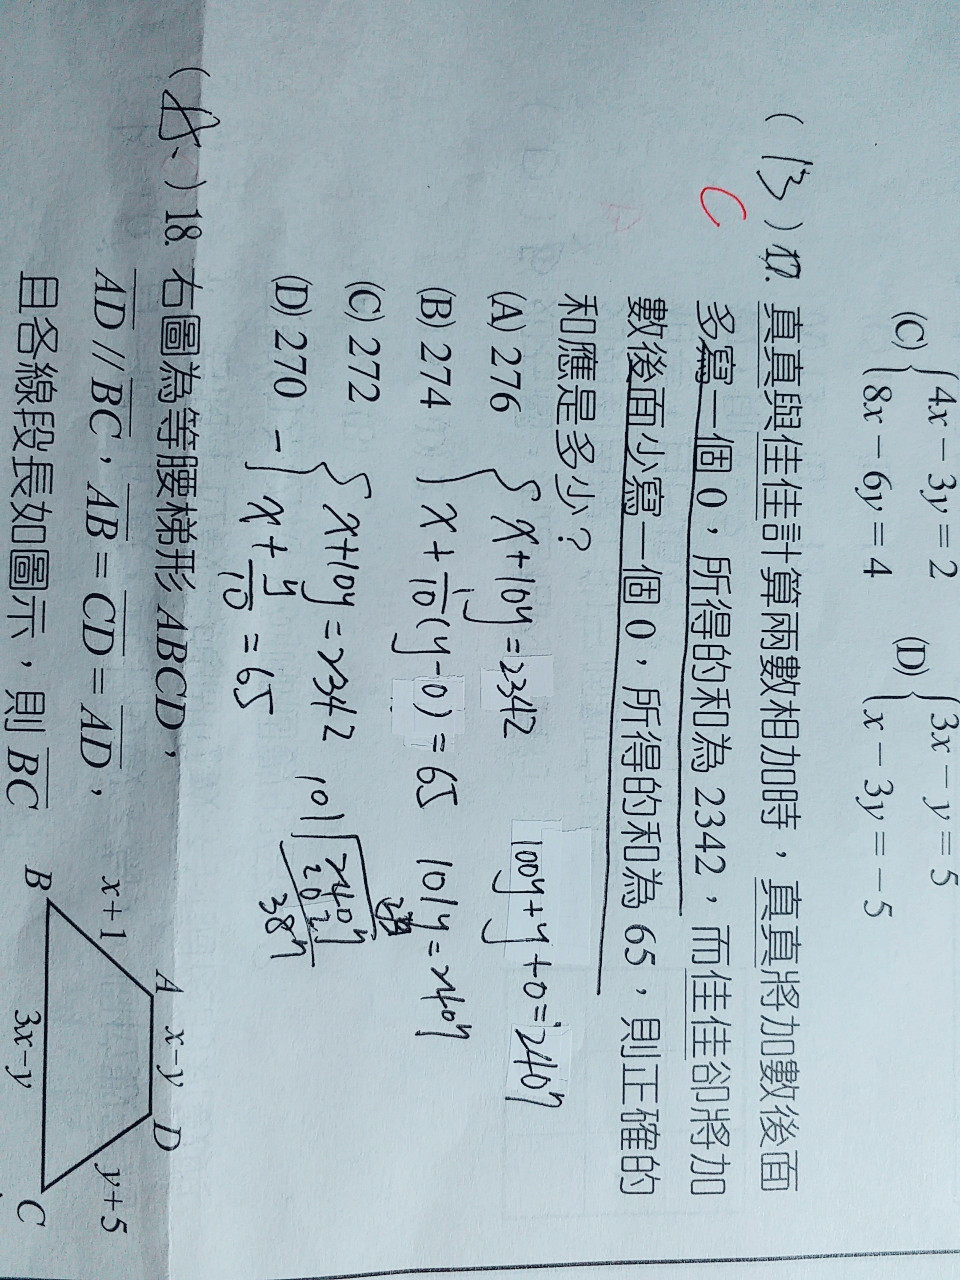 (C) {4x－3y＝2 (D) {3x－y＝5
8x－6y＝4 x－3y＝－5
( B ) 17. 真真與佳佳計算兩數相加時，真真將加數後面
C 多寫一個 0，所得的和為 2342，而佳佳卻將加
數後面少寫一個 0，所得的和為 65，則正確的
和應是多少？
(A) 276 { x+10y=2342 100y+y+0=2407
(B) 274 x+1/10(y-0)=65 101y=2407
(C) 272 { x+10y=2342
(D) 270 - x+y/10=65
101 2407
202
387
( ) 18. 右圖為等腰梯形 ABCD，
AD // BC，AB＝CD＝AD，
且各線段長如圖示，則 BC
A x－y D
x＋1 y＋5
B 3x－y C